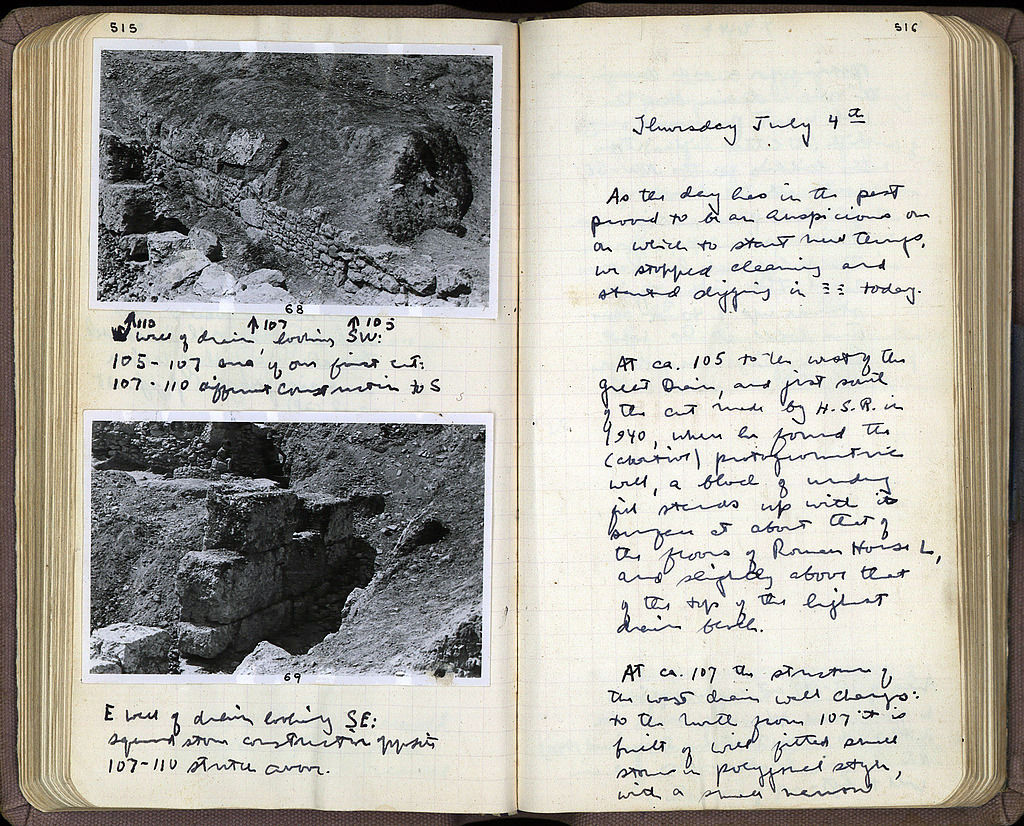 515
68
↑110 ↑107 ↑105
W wall of drain, looking SW:
105-107 area of our first cut:
107-110 different construction to S
69
E wall of drain looking SE:
squared stone construction opposite
107-110 stretch above.
516
Thursday July 4th
As the day has in the past
proved to be an auspicious one
on which to start new things,
we stopped cleaning and
started digging in ΞΞ today.
At ca. 105 to the west of the
great Drain, and just south
of the cut made by H.S.R. in
1940, where he found the
(abortive) protogeometric
well, a block of undug
fill stands up with its
surface at about that of
the floors of Roman House L,
and slightly above that
of the top of the highest
drain
At ca. 107 the structure of
the west drain wall changes:
to the north from 107 it is
built of well fitted small
stones in polygonal style,
with a small narrow